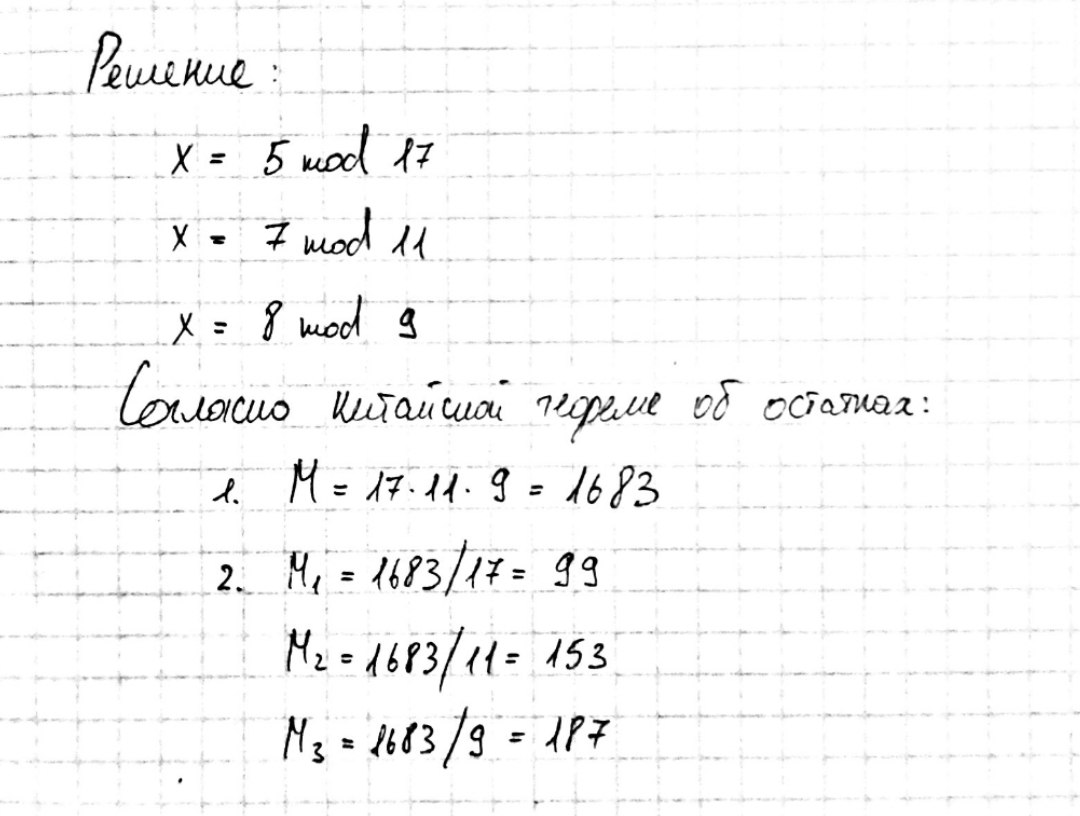 Решение:
x = 5 mod 17
x = 7 mod 11
x = 8 mod 9
Согласно Китайской теореме об остатках:
1. M = 17·11·9 = 1683
2. M₁ = 1683/17 = 99
M₂ = 1683/11 = 153
M₃ = 1683/9 = 187